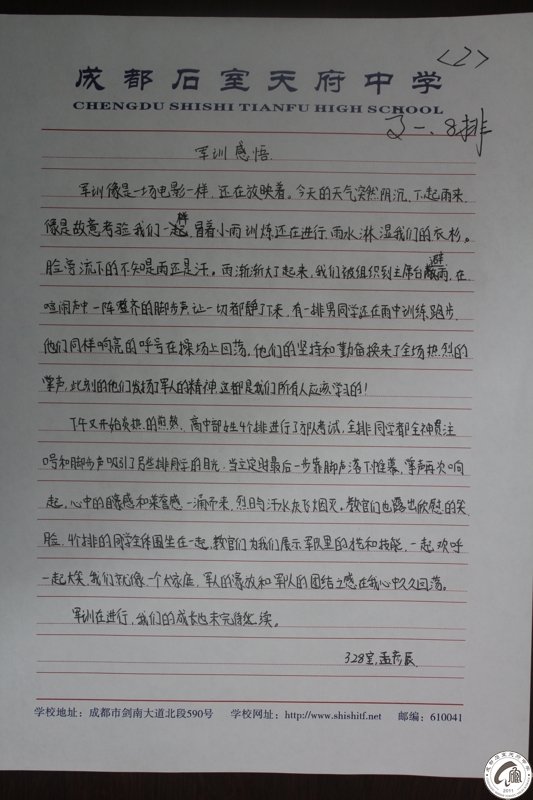 <2>
成都石室天府中学
CHENGDU SHISHI TIANFU HIGH SCHOOL
3一.8排
军训感悟
军训像是一场电影一样，还在放映着。今天的天气突然阴沉，下起雨来，
像是故意考验我们一样，冒着小雨训炼还在进行，雨水淋湿我们的衣衫。
脸旁流下的不知是雨还是汗。雨渐渐大了起来，我们被组织到主席台避雨，在
喧闹声中一阵整齐的脚步声让一切都静了下来，有一排男同学还在雨中训练跑步，
他们同样响亮的呼号在操场上回荡。他们的坚持和勤奋换来了全场热烈的
掌声，此刻的他们发扬了军人的精神，这都是我们所有人应该学习的！
下午又开始炎热的煎熬、高中部女生4个排进行了部队考试，全排同学都全神贯注
口号和脚步声吸引了男生排同学的目光，当立定时最后一步靠脚声落下帷幕，掌声再次响
起，心中的自豪感和荣誉感一涌而来，烈日的汗水灰飞烟灭。教官们也露出欣慰的笑
脸，4个排的同学全体围坐在一起，教官们为我们展示军队里的和技能，一起欢呼
一起大笑，我们就像一个大家庭，军人的豪放和军人的团结之感在我心中久久回荡。
军训在进行，我们的成长也未完待继续。
328室，孟彦辰
学校地址：成都市剑南大道北段590号 学校网址：http://www.shishitf.net 邮编：610041
2011